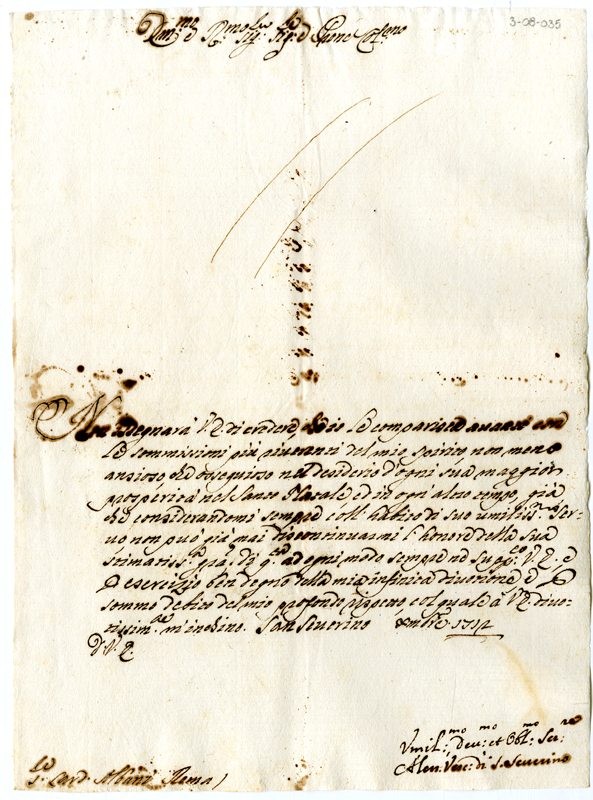 3-08-035
Em:mo e R.mo Sig: Sig: e Prone Col:mo
Non isdegnarà V.E. di credere, ch'io le comparisca avanti con
le sommissioni più riverenti del mio spirito non meno
ansioso, che ossequioso nel desiderio d'ogni sua maggior
prosperità nel Santo Natale ed in ogni altro tempo, già
che considerandomi sempre coll'habito di suo umiliss:o Ser-
vo non può già mai discontinuarmi l'honore della sua
stimatiss:a gra:, Di q:ta ad ogni modo sempre ne supp:co V.E. e
l'esercizio ben degno della mia infinita divotione e
sommo debito del mio profondo rispetto, col quale à V.E. divo-
tissim:te m'inchino. San Severino Xmbre 1712
D. V. E.
Umil:mo, Dev:mo et Obl:mo Ser:re
Alen. Vesc: di S. Severino
S. Card. Albani Roma)